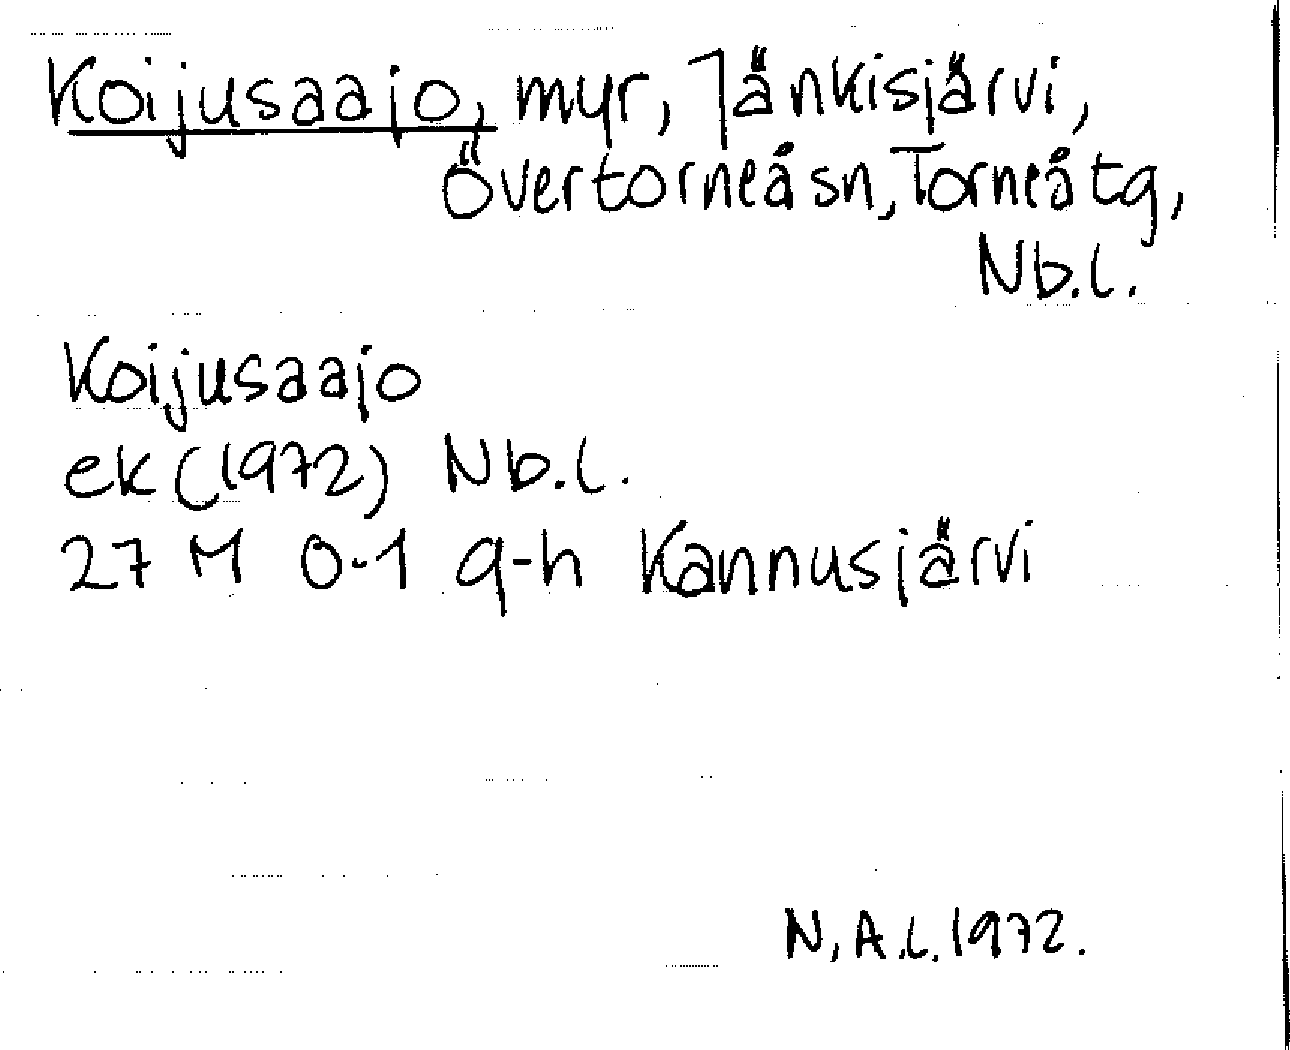 Koijusaajo, myr, Jänkisjärvi,
Övertorneå sn, Torneå tg,
Nb.l.
Koijusaajo
ek (1972) Nb.l.
27 M 0-1 g-h Kannusjärvi
N.A.L. 1972.